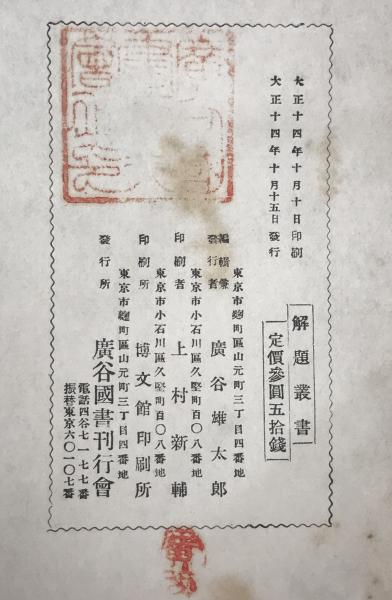 大正十四年十月十日印刷
大正十四年十月十五日發行
解題叢書
定價參圓五拾錢
東京市麹町區山元町三丁目四番地
編輯兼
發行者
廣谷雄太郎
東京市小石川區久堅町百〇八番地
印刷者
上村新輔
東京市小石川區久堅町百〇八番地
印刷所
博文館印刷所
東京市麹町區山元町三丁目四番地
發行所
廣谷國書刊行會
電話四谷七一七七番
振替東京六〇一〇七番